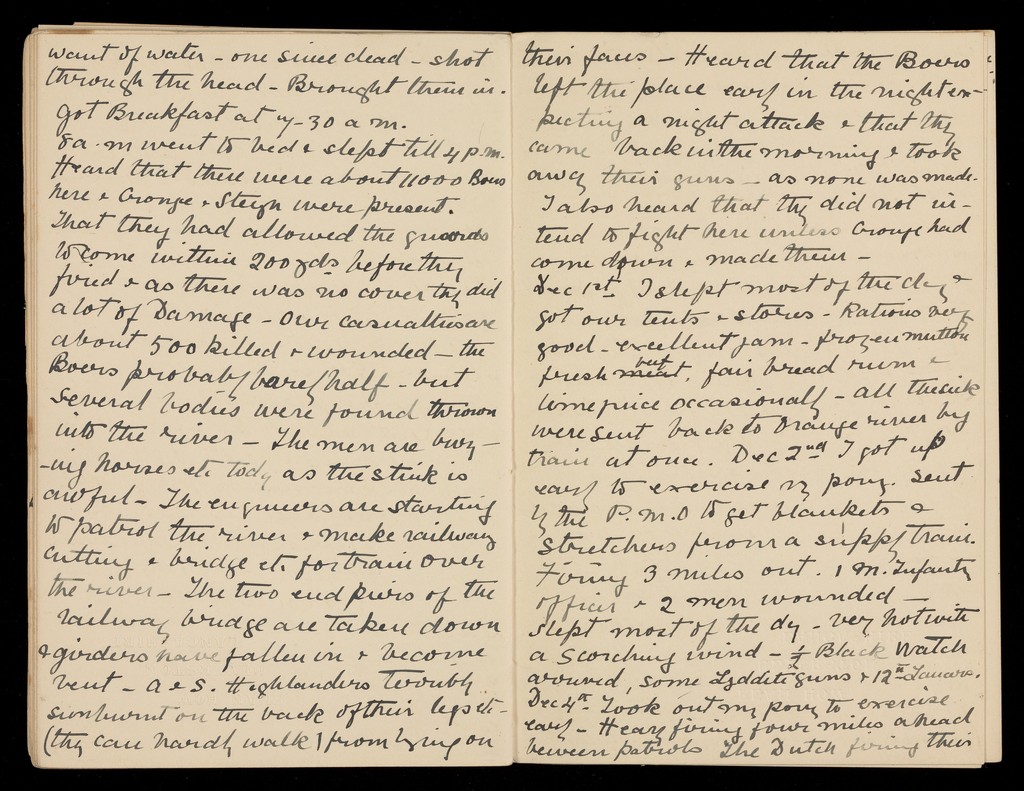 want of water - one since dead - shot
through the head - Brought them in.
got Breakfast at 7-30 a m.
8 a.m went to bed & slept till 4 p.m.
Heard that there were about 11000 Boers
here & Cronje & Steyn were present.
That they had allowed the guards
to come within 200 yds before they
fired & as there was no cover they did
a lot of Damage - Our casualties are
about 500 killed & wounded - the
Boers probably barely half - but
several bodies were found thrown
into the river - The men are bury-
-ing horses etc today as the stink is
awful - The engineers are starting
to patrol the river & make railway
cutting & bridge etc for train over
the river - The two end piers of the
railway bridge are taken down
& girders have fallen in & become
bent - A & S. Highlanders terribly
sunburnt on the back of their legs etc -
(they can hardly walk) from lying on
their faces - Heard that the Boers
left the place early in the night ex-
pecting a night attack & that they
came back in the morning & took
away their guns - as none was made.
I also heard that they did not in-
tend to fight here unless Cronje had
come down & made them -
Dec 1st. I slept most of the day &
got our tents & stores - Rations very
good - excellent jam - frozen mutton
fresh meat, but fair bread rum &
lime juice occasionally - all the sick
were sent back to Orange river by
train at once. Dec 2nd I got up
early to exercise my pony. Sent
by the P.M.O to get blankets &
stretchers from a supply train.
Firing 3 miles out. 1 M. Infantry
officer & 2 men wounded -
slept most of the dy - very hot with
a scorching wind - ½ Black Watch
arrived, some Lyddite guns & 12th Lancers.
Dec 4th - Took out my pony to exercise
early - Heavy firing four miles ahead
beween patrols The Dutch firing their